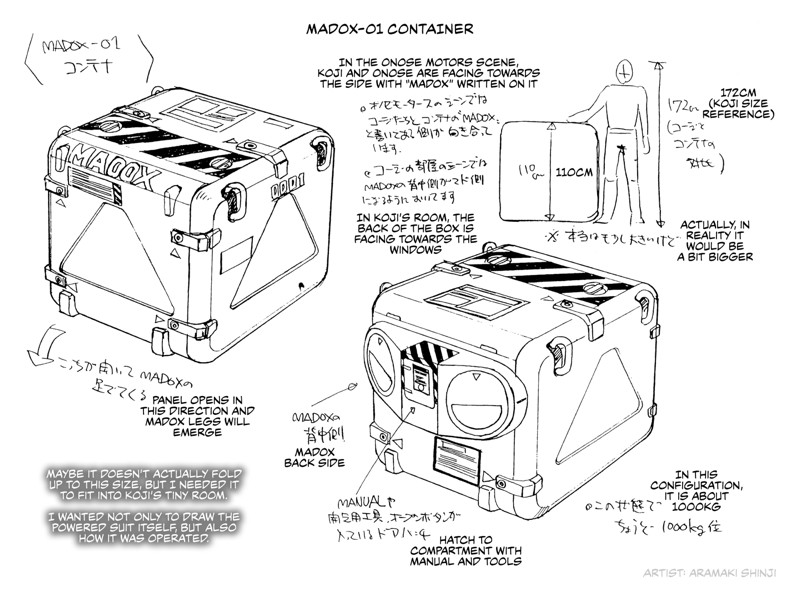 MADOX-01 CONTAINER
MADOX-01
コンテナ
IN THE ONOSE MOTORS SCENE,
KOJI AND ONOSE ARE FACING TOWARDS
THE SIDE WITH "MADOX" WRITTEN ON IT
オノセモータースのシーンでは
コージたちとコンテナのMADOX
と書いてある側が向き合って
います。
コージの部屋のシーンでは
MADOXの背中側がマド側
になるようにおいてます
IN KOJI'S ROOM, THE
BACK OF THE BOX IS
FACING TOWARDS THE
WINDOWS
110cm
110CM
172CM
(KOJI SIZE
REFERENCE)
172cm
(コージと
コンテナの
対比)
※ 本当はもう少し大きいけど
ACTUALLY, IN
REALITY IT
WOULD BE
A BIT BIGGER
MADOX
0001
こっちが開いてMADOXの
足でてくる
PANEL OPENS IN
THIS DIRECTION AND
MADOX LEGS WILL
EMERGE
MADOXの
背中側
MADOX
BACK SIDE
MAYBE IT DOESN'T ACTUALLY FOLD
UP TO THIS SIZE, BUT I NEEDED IT
TO FIT INTO KOJI'S TINY ROOM.
I WANTED NOT ONLY TO DRAW THE
POWERED SUIT ITSELF, BUT ALSO
HOW IT WAS OPERATED.
MANUALや
工具、オープンボタンが
入っているハッチ
HATCH TO
COMPARTMENT WITH
MANUAL AND TOOLS
IN THIS
CONFIGURATION,
IT IS ABOUT
1000KG
この状態で
ちょうど 1000kg位
ARTIST: ARAMAKI SHINJI